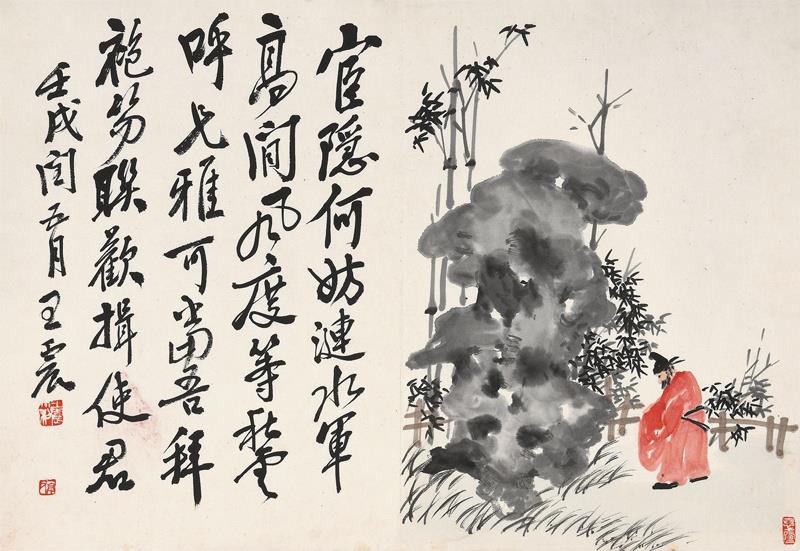 宦隱何妨漣水軍
高閒風度等秋雲
呼兄雅可當吾拜
袍笏聯歡揖使君
壬戌閏五月 王震